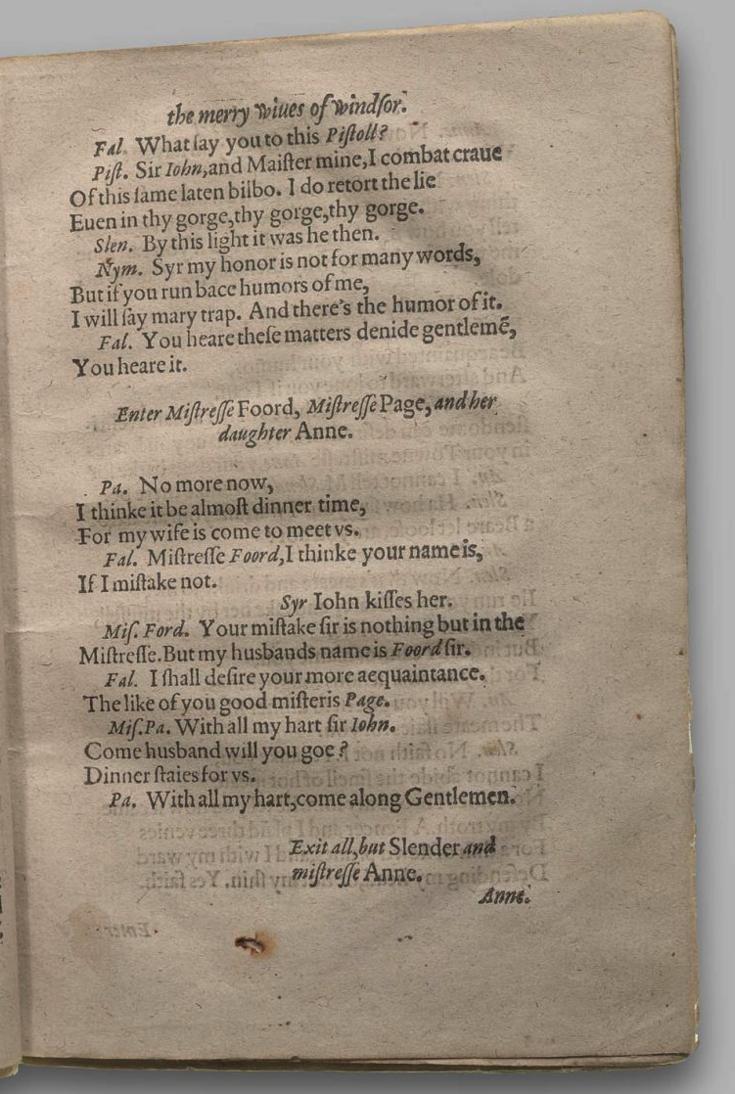 the merry wiues of windſor.
Fal. What ſay you to this Piſtoll?
Piſt. Sir Iohn, and Maiſter mine, I combat craue
Of this ſame laten bilbo. I do retort the lie
Euen in thy gorge, thy gorge, thy gorge.
Slen. By this light it was he then.
Nym. Syr my honor is not for many words,
But if you run bace humors of me,
I will ſay mary trap. And there's the humor of it.
Fal. You heare theſe matters denide gentlemẽ,
You heare it.
Enter Miſtreſſe Foord, Miſtreſſe Page, and her
daughter Anne.
Pa. No more now,
I thinke it be almoſt dinner time,
For my wife is come to meet vs.
Fal. Miſtreſſe Foord, I thinke your name is,
If I miſtake not.
Syr Iohn kiſſes her.
Miſ. Ford. Your miſtake ſir is nothing but in the
Miſtreſſe. But my husbands name is Foord ſir.
Fal. I ſhall deſire your more aequaintance.
The like of you good miſteris Page.
Miſ. Pa. With all my hart ſir Iohn.
Come husband will you goe?
Dinner ſtaies for vs.
Pa. With all my hart, come along Gentlemen.
Exit all, but Slender and
miſtreſſe Anne.
Anne.